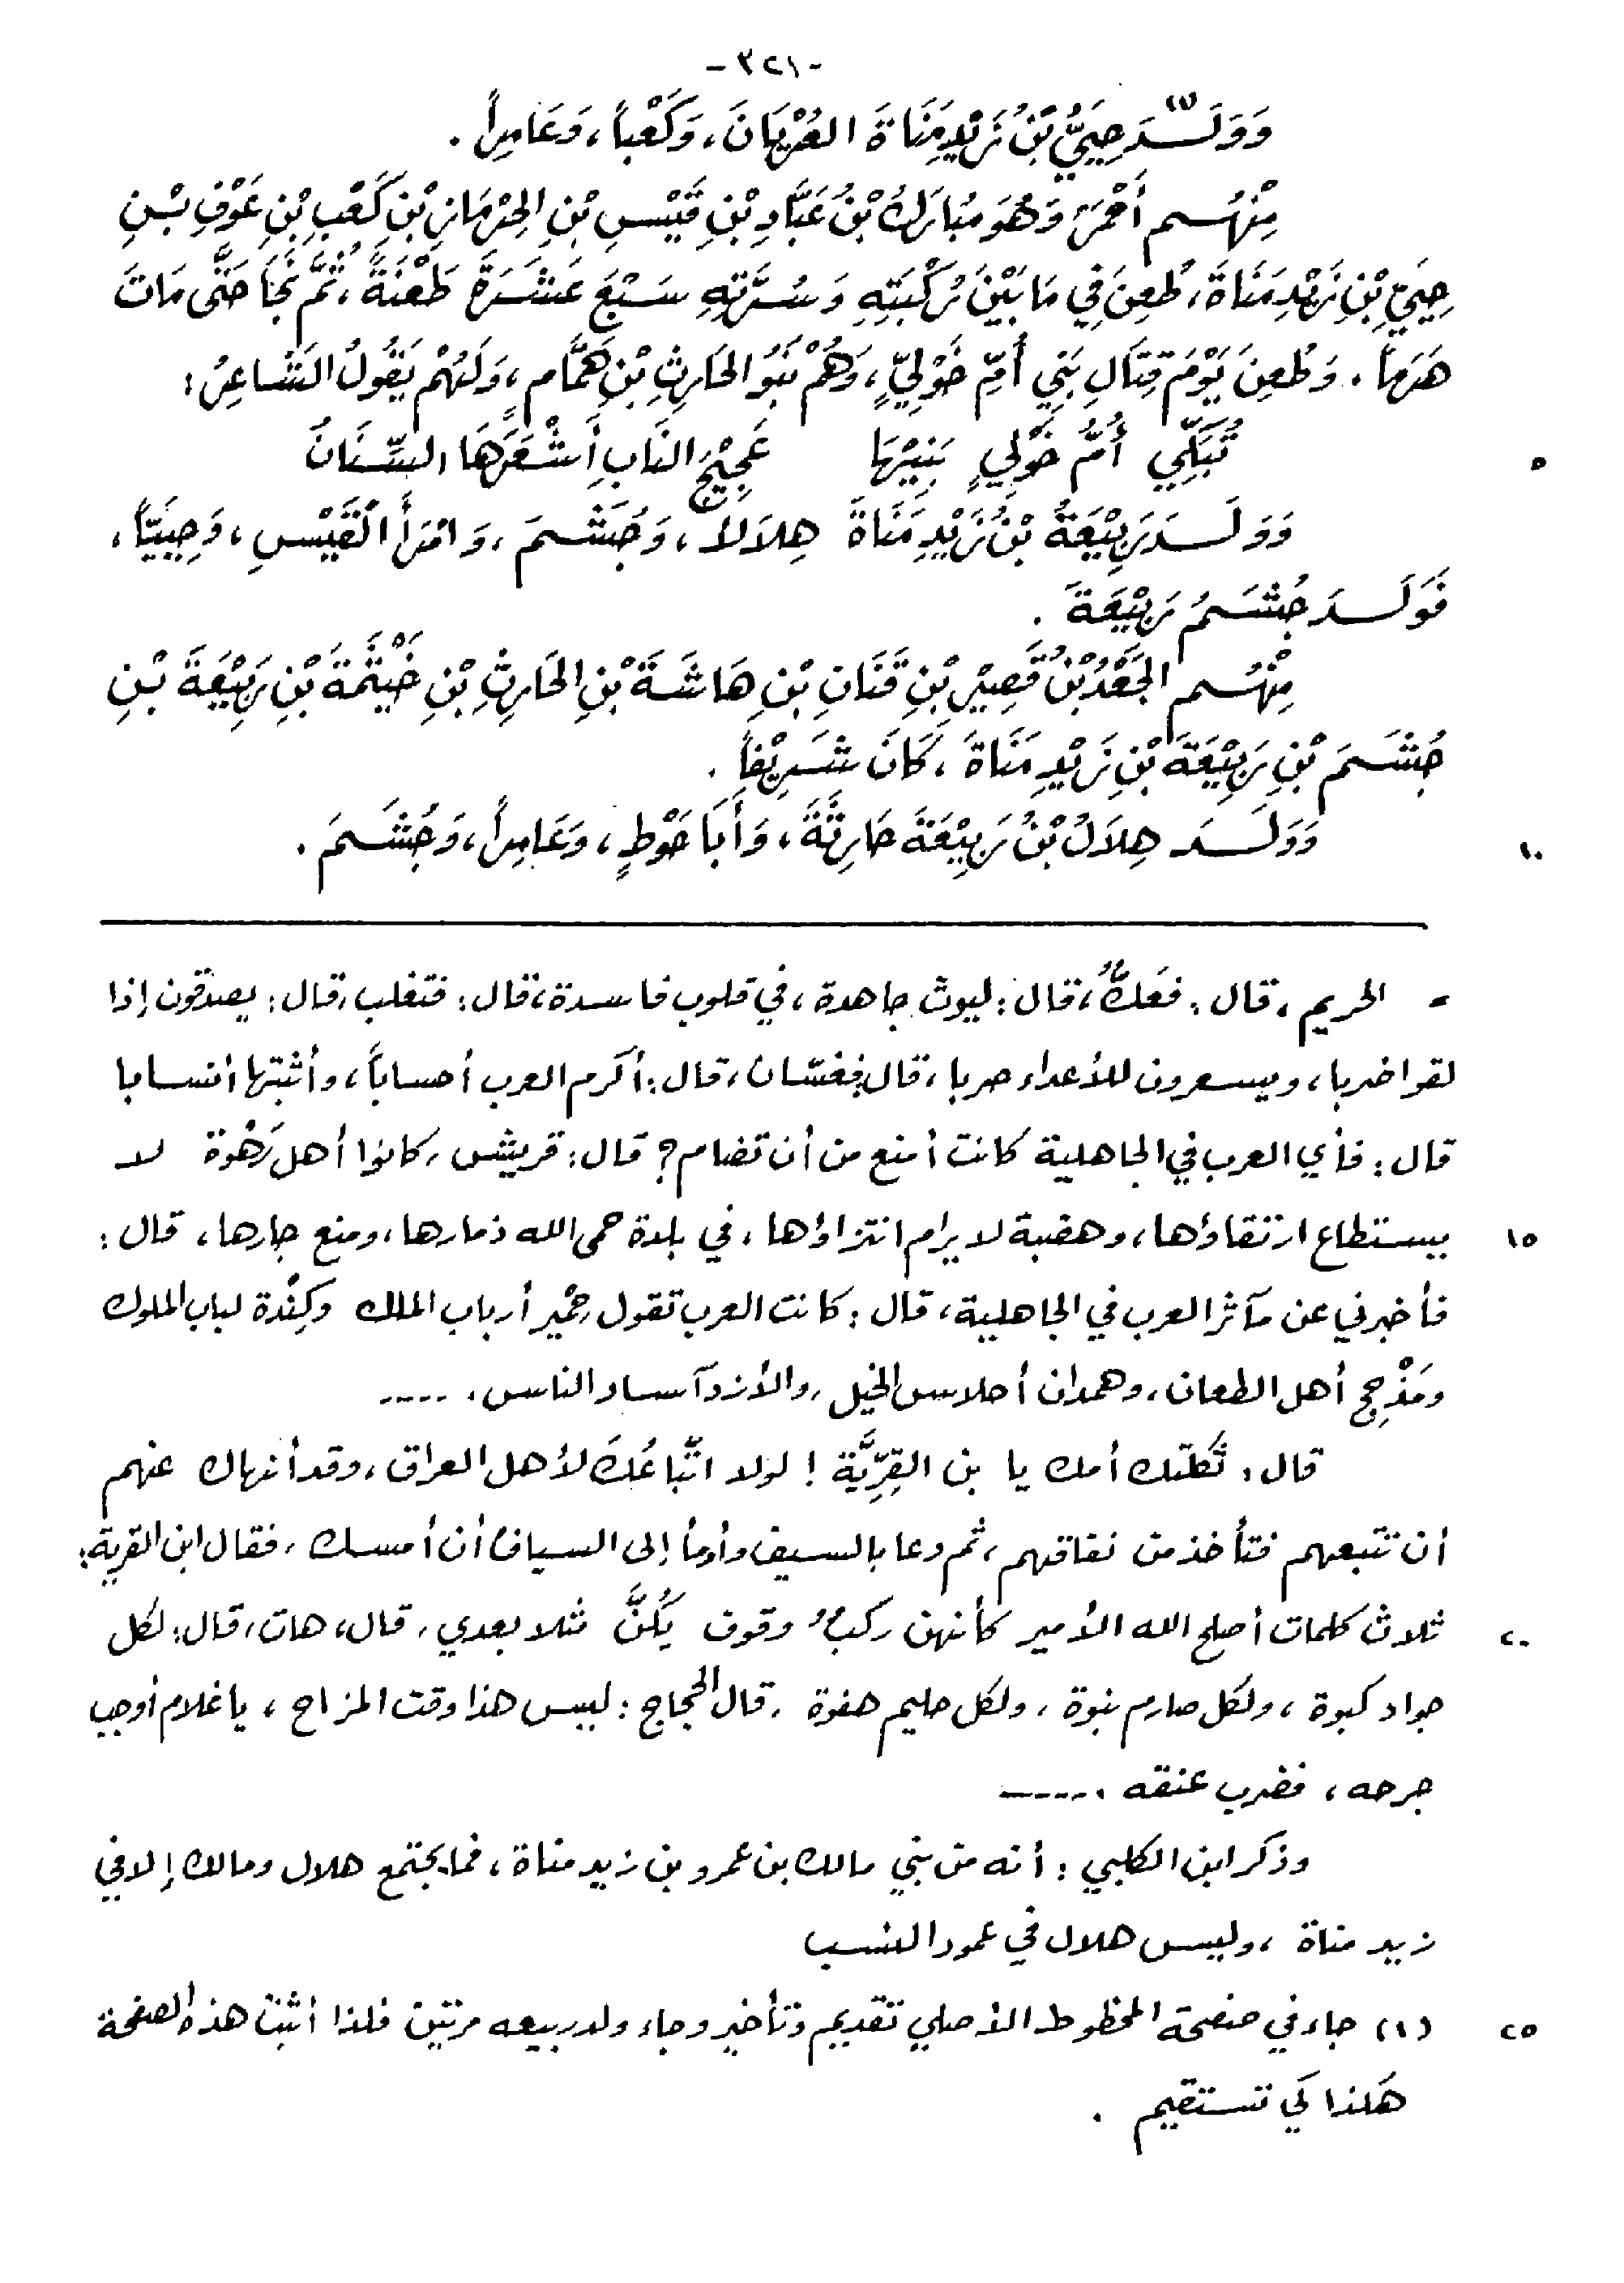 -٣٢١-
وَوَلَـدَ(١) حِيَيُّ بْنُ زَيْدِ مَنَاةَ العُرْيَانَ، وَكَعْباً، وَعَامِراً.
مِنْهُـم أَحْمَرُ وَهُوَ مُبَارَكُ بْنُ عَبَّادِ بْنِ قَيْسِ بْنِ الحِرْمَازِ بْنِ كَعْبِ بْنِ عَوْفِ بْـنِ
حِيَيِّ بْنِ زَيْدِ مَنَاةَ، طُعِنَ فِي مَا بَيْنَ رُكْبَتِهِ وَسُرَّتِهِ سَبْعَ عَشَرَةَ طَعْنَةً، ثُمَّ نَجَا حَتَّى مَاتَ
هَرَماً. وَطُعِنَ يَوْمَ قِتَالِ بَنِي أُمِّ خَوْلِيٍّ، وَهُمْ بَنُو الحَارِثِ بْنِ هَمَّامٍ، وَلَهُمْ يَقُولُ الشَّاعِرُ:
تُبَكِّي أُمُّ خَوْلِيٍ بَنِيْهَا عَجِيْجَ النَّابِ أَشْعَرَهَا السِّنَانُ ٥
وَوَلَـدَ رَبِيْعَةُ بْنُ زَيْدِ مَنَاةَ هِلَالاً، وَجُشَـمَ، وَامْرَأَ القَيْسِ، وَحِيَيّاً،
فَوَلَـدَ جُشَـمُ رَبِيْعَةَ.
مِنْهُـم الجَعْدُ بْنُ قَصِيْرِ بْنِ قَنَانِ بْنِ هَاشَةَ بْنِ الحَارِثِ بْنِ خَيْثَمَةَ بْنِ رَبِيْعَةَ بْـنِ
جُشَـمَ بْنِ رَبِيْعَةَ بْنِ زَيْدِ مَنَاةَ، كَانَ شَرِيْفاً.
وَوَلَـدَ هِلَالُ بْنُ رَبِيْعَةَ حَارِثَةَ، وَأَبَا حَوْطٍ، وَعَامِراً، وَجُشَـمَ. ١٠
= الحريم، قال: فعَكٌّ، قال: ليوث جاهدة، في قلوب فاسدة، قال: فتغلب، قال: يصدقون إذا
لقوا ضربا، ويسعرون للأعداء حربا، قال: فغسّان، قال: أكرم العرب أحساباً، وأثبتها أنسابا
قال: فأي العرب في الجاهلية كانت أمنع من أن تضام؟ قال: قريش، كانوا أهل رَهْوة لا
يستطاع ارتقاؤها، وهضبة لا يرام انتزاؤها، في بلدة حمى الله ذمارها، ومنع جارها، قال: ١٥
فأخبرني عن مآثر العرب في الجاهلية، قال: كانت العرب تقول حِمْير أرباب الملك وكِنْدة لباب الملوك
ومَذْحِج أهل الطعان، وهمدان أحلاس الخيل، والأزد آساد الناس. .....
قال: ثكلتك أمك يا بن القِرِّيَّة! لولا اتّباعُكَ لأهل العراق، وقد أنهاك عنهم
أن تتبعهم فتأخذ من نفاقهم، ثم دعا بالسيف وأومأ إلى السياف أن أمسك، فقال ابن القرية:
ثلاث كلمات أصلح الله الأمير كأنهن ركبٌ وقوف يَكُنَّ مثلا بعدي، قال، هات، قال: لكل ٢٠
جواد كبوة، ولكل صارم نبوة، ولكل حليم هفوة، قال الحجاج: ليس هذا وقت المزاح، يا غلام أوجب
جرحه، فضرب عنقه. .....
وذكر ابن الكلبي: أنه من بني مالك بن عمرو بن زيد مناة، فما يجتمع هلال ومالك إلا في
زيد مناة، وليس هلال في عمود النسب
(١) جاء في صفحة المخطوط الأصلي تقديم وتأخير وجاء ولد ربيعه مرتين فلذا أثبت هذه الصفحة ٢٥
هكذا كي تستقيم.